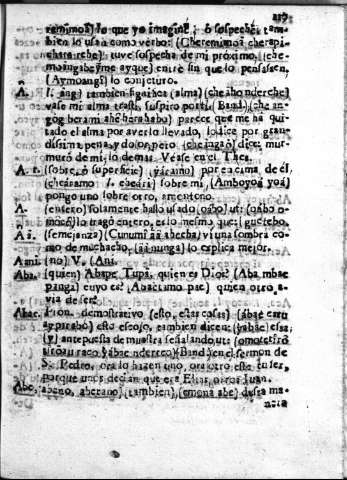 217
remimoã) lo que yo imaginè; ò sospechè: tam-
bien lo usan como verbo: (Cheremimoã cherapi-
chara rehe): tuve sospecha de mi proximo, (che-
moangabeỹme ayque) entrè sin que lo pensasen,
(Aymoangi) lo conjeturo.
A. l. ang) tambien significa (alma) (che àho nderehe)
vase mi alma tras ti, suspiro por ti (Band.) (che an-
gog berami ahê herahabo) parece que me hà qui-
tado el alma por averlo llevado, lo dice por gran-
dissima pena, y dolor, pero dice: mur-
murò de mi, lo demas. Vèase en el Thes.
A. r. (sobre, ò superficie) por encima de él,
(cheáramo l. sobre mi, (Amboyoá yoá)
pongo uno sobre otro, amontono.
A. (entero) solamente hallo usado ut: o-
mocỹ) lo tragò entero, es lo mesmo que:
Aã. (semejanza) (Cunumî aã ahecha) vi una sombra co-
mo de muchacho, (aã nunga) lo explica mejor.
Aani. (no) V. (Ani.
Aba. (quien) Abape Tupã, quien es Dios? (Aba mbae
panga) cuyo es? (Abaetamo pae) quien otro a-
via de ser?
Abae. Pron. demostrativo (esto, estas cosas) (ábae catu
aypirabò) esto escojo, tambien dicen: (yabàe) essa;
(y) antepuesta de muestra señalando, ut:
Band. en el sermon de
S. Pedro, ora lo hazen uno, ora otro este
porque unos decian que era Elias, otros Juan.
Abe. abeno, abetano) (tambien), (emonà abe) desta ma-
nera